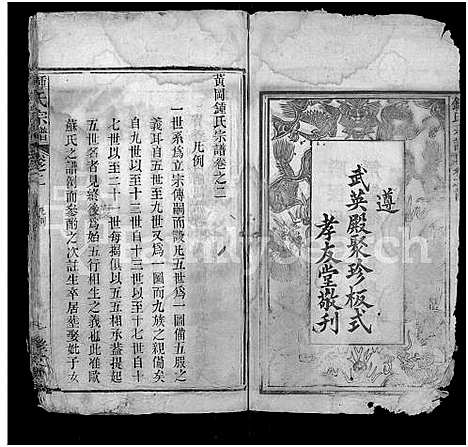 遵
武英殿聚珍板式
孝友堂敬刊
黃岡鍾氏宗譜卷之二
凡例
一世系爲立宗傳嗣而設凡五世爲一圖備五服之
義耳自五世至九世又爲一圖而九族之親備矣
自九世以至十三世以至十七世自十
七世以至二十一世每揭俱以五五相承蓋提起
五世名者見終後爲始五行相生之義也此准歐
蘇氏之譜剏而參酌之次註生卒居塟娶妣子女
氏宗譜
FamilySearch